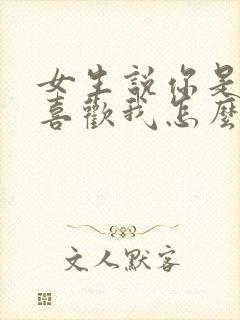 女生說你是
喜歡我怎麼
文人默客